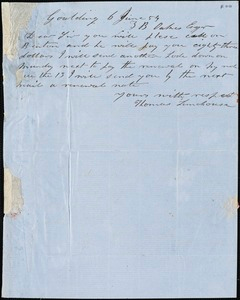 Goulding 6 June 54
Z B Oakes Esqr
Dear Sir you will please call on
and he will pay you eighty three
dollars I will send another Lode down on
Munday next to pay the renewal on my note
on the 13 I will send you by the next
mail a renewal note
yours with respect
Thomas Limehouse